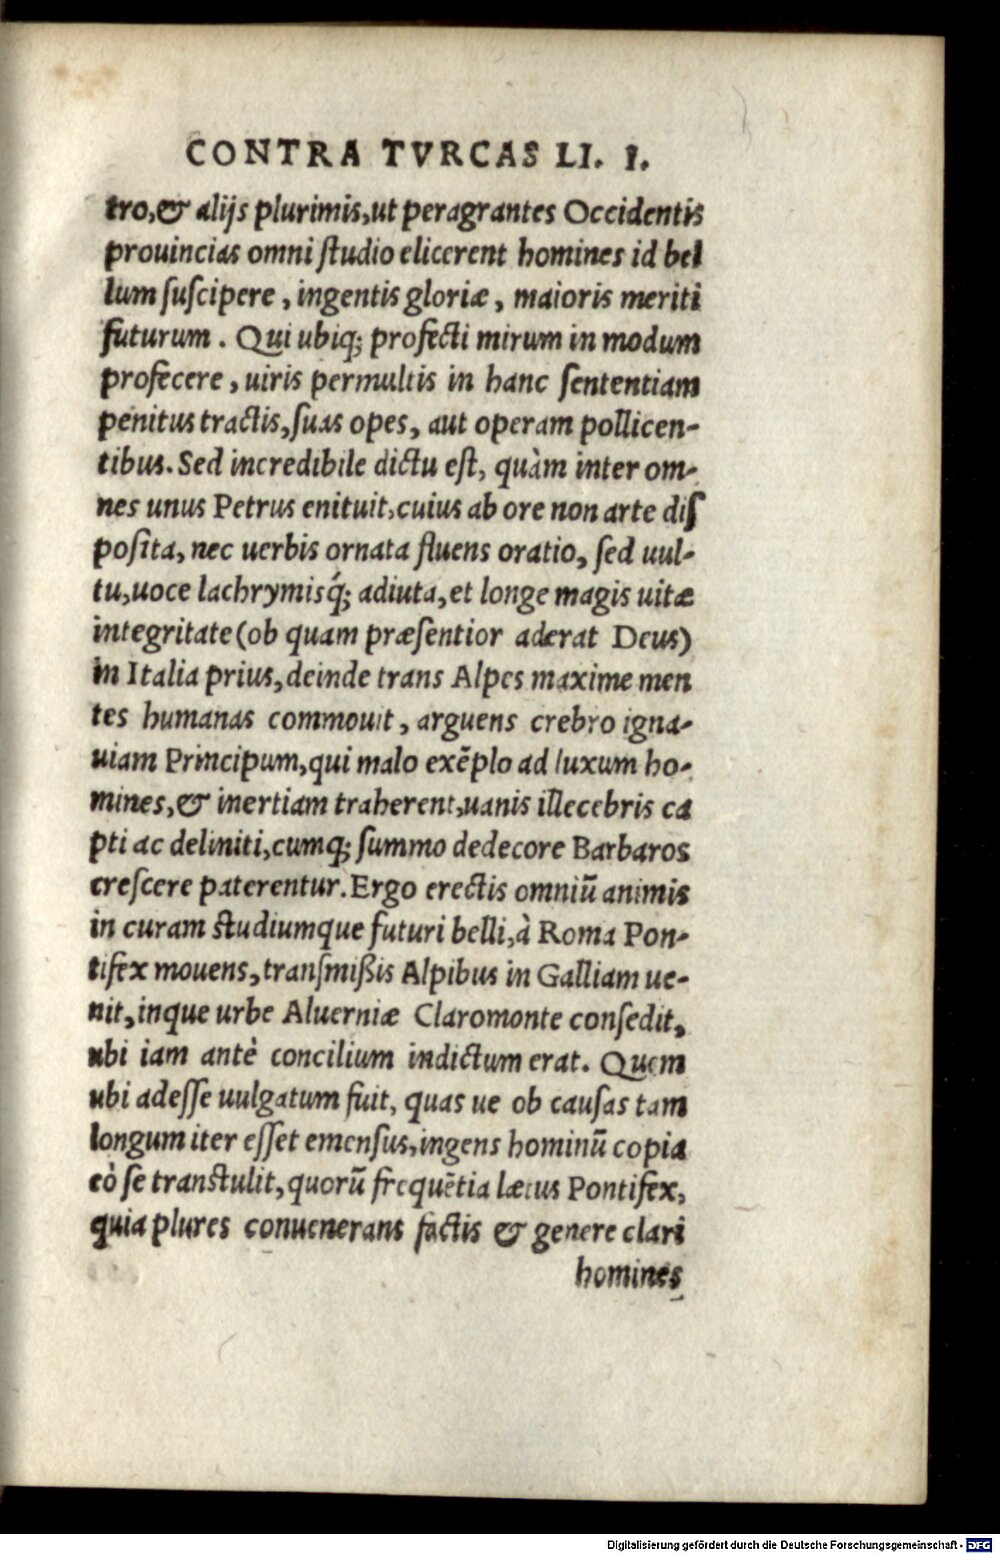 CONTRA TVRCAS LI. I.
tro,& alijs plurimis,ut peragrantes Occidentis
prouincias omni ſtudio elicerent homines id bel
lum ſuſcipere, ingentis gloriæ, maioris meriti
futurum. Qui ubiq; profecti mirum in modum
profecere, uiris permultis in hanc ſententiam
penitus tractis,ſuas opes, aut operam pollicen-
tibus. Sed incredibile dictu eſt, quàm inter om-
nes unus Petrus enituit,cuius ab ore non arte diſ
poſita, nec uerbis ornata fluens oratio, ſed uul-
tu,uoce lachrymisq́; adiuta, et longe magis uitæ
integritate (ob quam præſentior aderat Deus)
in Italia prius, deinde trans Alpes maxime men
tes humanas commouit, arguens crebro igna-
uiam Principum,qui malo exẽplo ad luxum ho-
mines,& inertiam traherent,uanis illecebris ca
pti ac deliniti,cumq; ſummo dedecore Barbaros
creſcere paterentur. Ergo erectis omniũ animis
in curam ſtudiumque futuri belli,à Roma Pon-
tifex mouens, tranſmißis Alpibus in Galliam ue-
nit, inque urbe Aluerniæ Claromonte conſedit,
ubi iam antè concilium indictum erat. Quem
ubi adeſſe uulgatum fuit, quas ue ob cauſas tam
longum iter eſſet emenſus,ingens hominũ copia
eò ſe tranſtulit, quorũ frequẽtia lætus Pontifex,
quia plures conuenerans factis & genere clari
homines
Digitalisierung gefördert durch die Deutsche Forschungsgemeinschaft - DFG